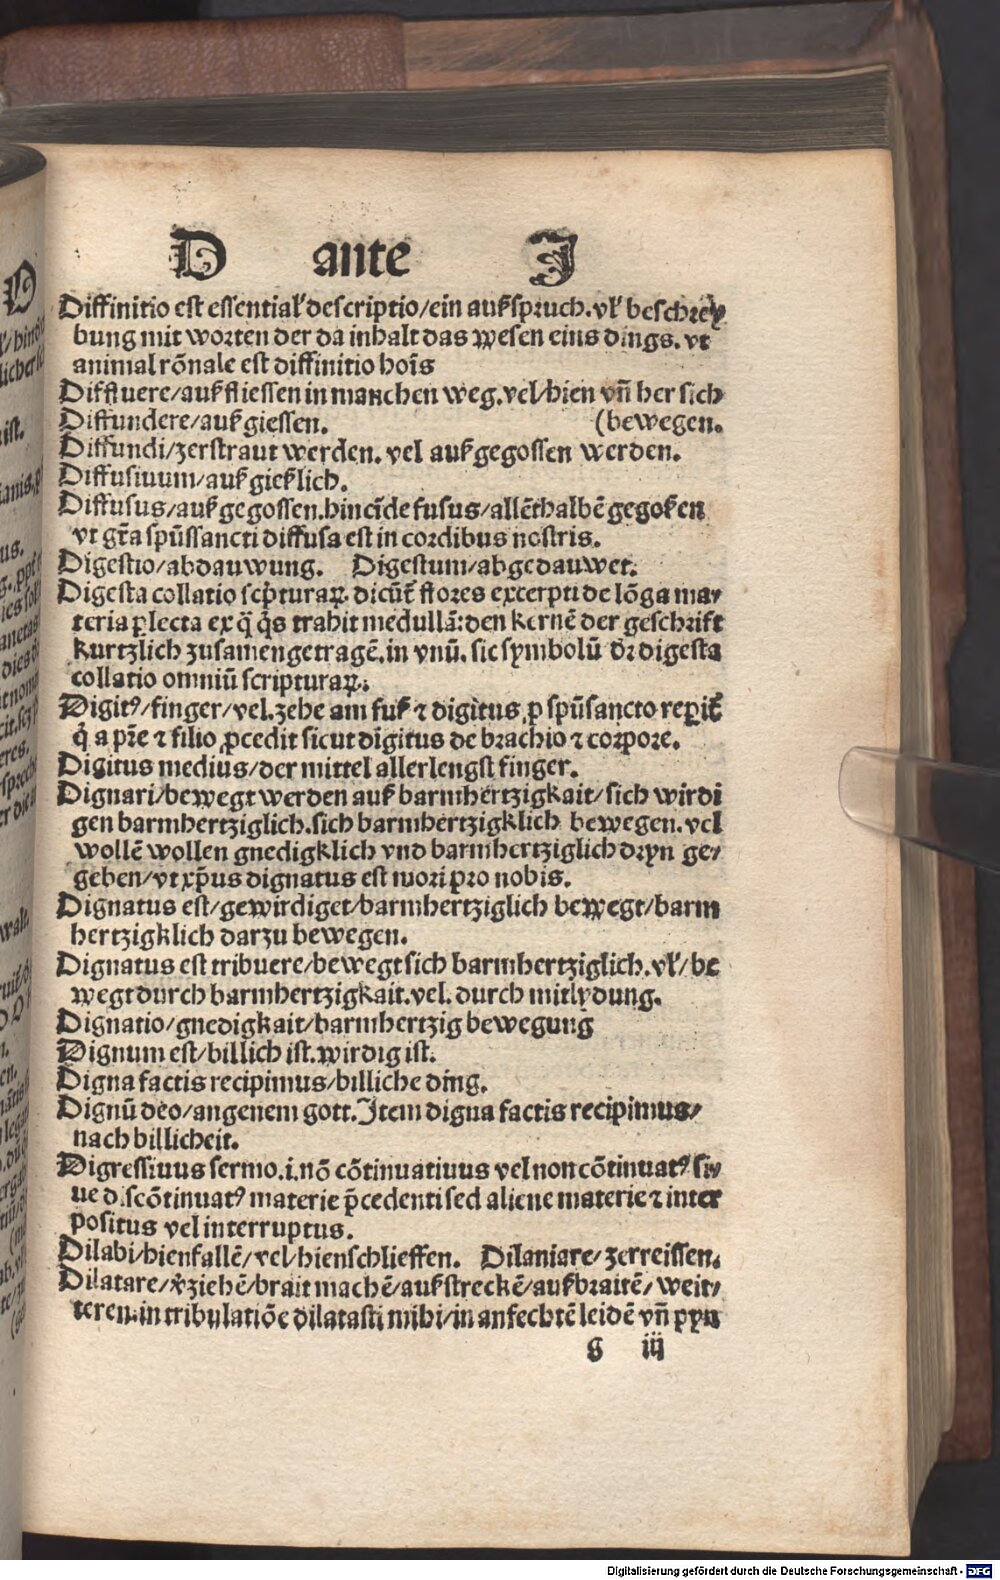 D ante J
Diffinitio est essential' descriptio/ein außspruch.vl' beschrey
bung mit worten der da inhalt das wesen eins dings. vt
animal rõnale est diffinitio hoĩs
Diffluere/außfliessen in manchen weg.vel/hien vñ her sich
Diffundere/außgiessen. (bewegen.
Diffundi/zerstraut werden. vel außgegossen werden.
Diffusiuum/außgießlich.
Diffusus/außgegossen.hincĩde fusus/allẽthalbẽ gegoßen
vt gr̃a spũssancti diffusa est in cordibus nostris.
Digestio/abdauwung. Digestum/abgedauwet.
Digesta collatio scp̃turaꝝ. dicũt̃ flores excerpti de lõga ma/
teria ꝑlecta ex q̃ q̃s trahit medullã:den kernẽ der geschrift
kurtzlich zusamengetragẽ.in vnũ. sic symbolũ dr̃ digesta
collatio omniũ scripturaꝝ.
Digitꝰ/finger/vel.zehe am fuß ⁊ digitus ꝓ spũsancto reꝑit̃
q̃ a pr̃e ⁊ filio ꝓcedit sicut digitus de brachio ⁊ corpore.
Digitus medius/der mittel allerlengst finger.
Dignari/bewegt werden auß barmhertzigkait/sich wirdi
gen barmhertziglich.sich barmhertzigklich bewegen.vel
wollẽ wollen gnedigklich vnd barmhertziglich dryn ge/
geben/vt xp̃us dignatus est mori pro nobis.
Dignatus est/gewirdiget/barmhertziglich bewegt/barm
hertzigklich darzu bewegen.
Dignatus est tribuere/bewegt sich barmhertziglich.vl'/be
wegt durch barmhertzigkait.vel.durch mitlydung.
Dignatio/gnedigkait/barmhertzig bewegung
Dignum est/billich ist.wirdig ist.
Digna factis recipimus/billiche ding.
Dignũ deo/angenem gott.Jtem digna factis recipimus/
nach billicheit.
Digressiuus sermo.i.nõ cõtinuatiuus vel non cõtinuatꝰ si/
ue discõtinuatꝰ materie p̃cedenti sed aliene materie ⁊ inter
positus vel interruptus.
Dilabi/hienfallẽ/vel/hienschlieffen. Dilaniare/zerreissen.
Dilatare/v̾ziehẽ/brait machẽ/außstreckẽ/außbraitẽ/weit/
teren.in tribulatiõe dilatasti mihi/in anfechtẽ leidẽ vñ pyn
g iij
Digitalisierung gefördert durch die Deutsche Forschungsgemeinschaft - DFG